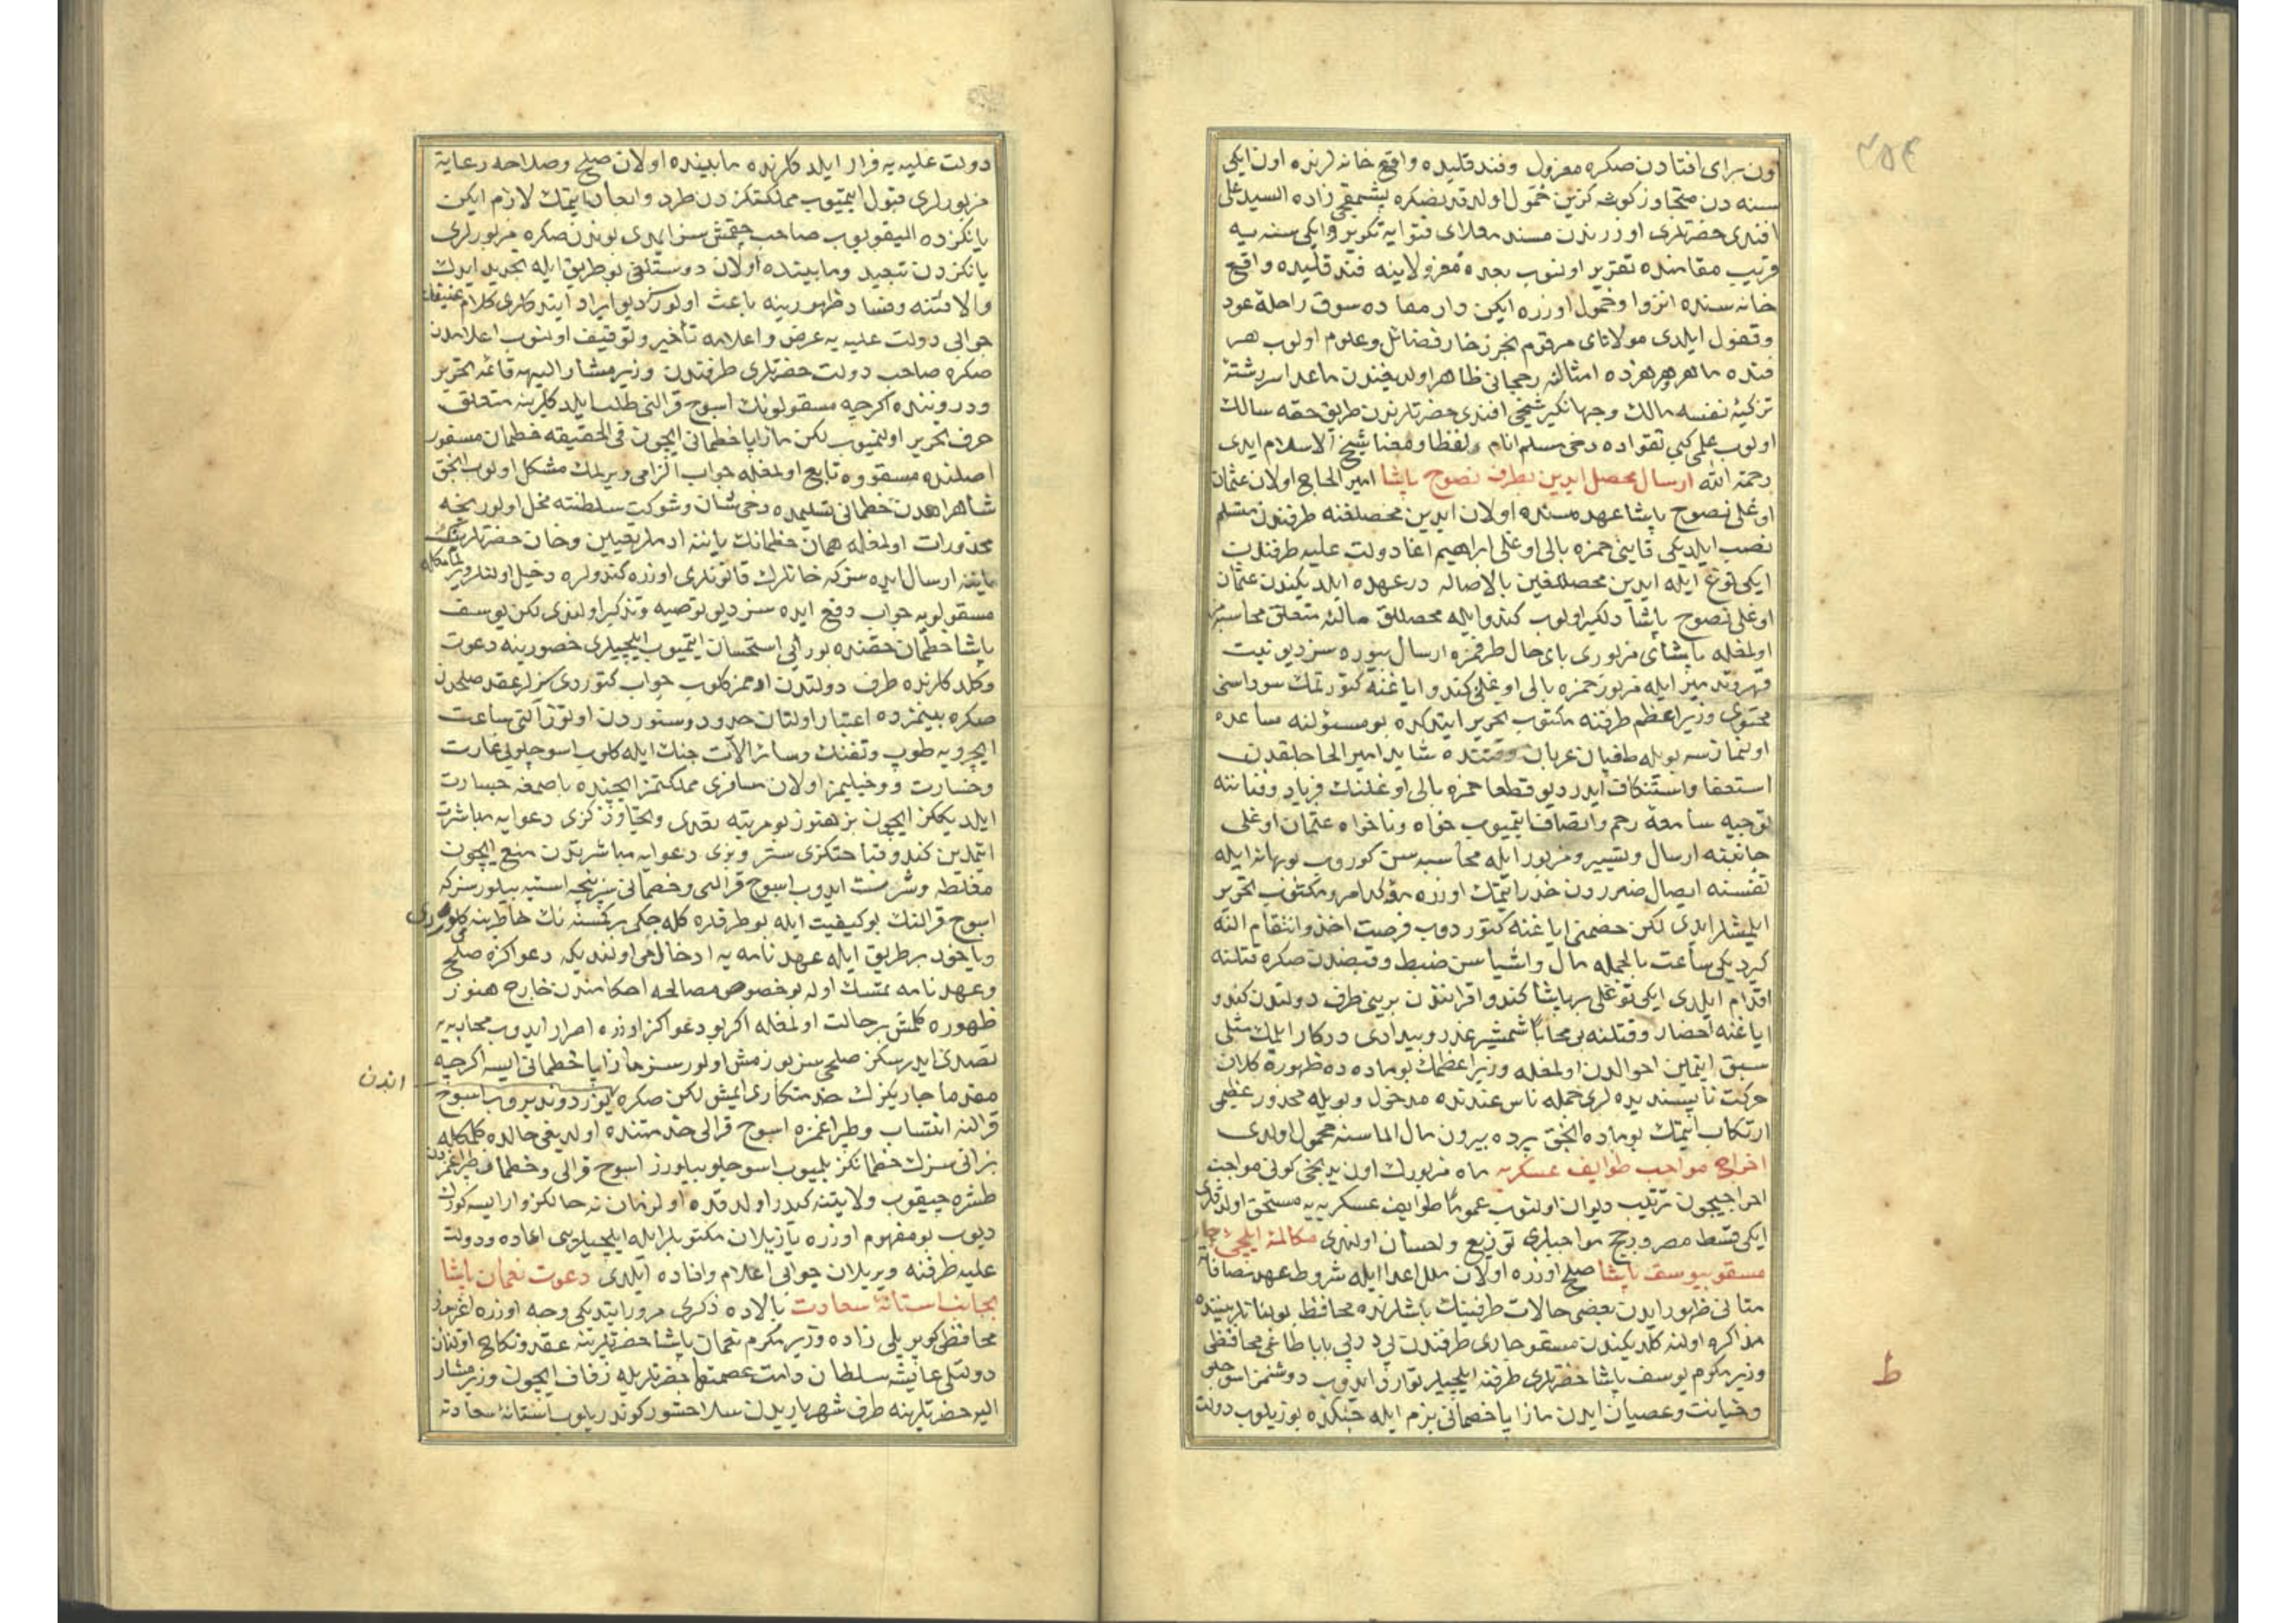 اون برای افتادن صکره معزول وفندقلیده واقع خانه لرنده اون ایکی
سنه دن متجاوز کوشه کزین خمول اولدقدنصکره پشمقجی زاده السید علی
افندی حضرتلری اوزرندن مسند معلای فتوایه تکویر و ایکی سنه یه
قریب مقامنده تقریر اولنوب بعده معزولاینه فندقلیده واقع
خانه سنده انزوا وخمول اوزره ایکن دار معاده سوق راحلهٔ عود
وقفول ایلدی مولانای مرقوم بحر زخار فضائل وعلوم اولوب هر
فنده ماهر وهر هنرده امثالنه رجحانی ظاهر اولدیغندن ماعدا سررشتهٔ
تزکیهٔ نفسه مالك وجهانکیر شیخی افندی حضرتلرندن طریق حقه سالك
اولوب علمی کبی تقواده دخی مسلم انام ولفظا ومعنا شیخ الاسلام ایدی
رحمة الله ارسال محصل ایدین بطرف نصوح پاشا امیر الحاج اولان عثمان
اوغلی نصوح پاشا عهده سنده اولان ایدین محصللغنه طرفندن متسلم
نصب ایلدیکی قاینی حمزه بالی اوغلی ابراهیم اغا دولت علیه طرفندن
ایکی توغ ایله ایدین محصللغین بالاصاله درعهده ایلدیکندن عثمان
اوغلی نصوح پاشا دلکیر اولوب کندو ایله محصللق مالنه متعلق محاسبه مز
اولمغله پاشای مزبوری بای حال طرفمزه ارسال بیوره سز دیو نیت
قهر وتدمیر ایله مزبور حمزه بالی اوغلی کندو ایاغنه کتورتمك سوداسنی
محتوی وزیر اعظم طرفنه مکتوب تحریر ایتدکده بو مسئولنه مساعده
اولنمازسه بویله طغیان عربان وقتنده شاید امیر الحاجلقدن
استعفا واستنکاف ایدر دیو قطعا حمزه بالی اوغلنك فریاد وفغاننه
توجیه سامعهٔ رحم وانصاف ایتمیوب خواه وناخواه عثمان اوغلی
جانبنه ارسال وتسییر ومزبور ایله محاسبه سن کوروب بو بهانه ایله
نفسنه ایصال ضرردن حذر ایتمك اوزره مؤکد امر ومکتوب تحریر
ایلمشلر ایدی لکن خصمنی ایاغنه کتوردوب فرصت اخذ وانتقام النه
کیردیکی ساعت بالجمله مال واشیاسن ضبط وقبضدن صکره قتلنه
اقدام ایلدی ایکی توغلی بر پاشا کندو اقرانندن برینی طرف دولتدن کندو
ایاغنه احضار وقتلنه بی محابا شمشیر غدر وبیدادی درکار ایلمك مثلی
سبق ایتمین احوالدن اولمغله وزیر اعظمك بو ماده ده ظهوره کلان
حرکت ناپسندیده لری جمله ناس عندنده مدخول وبویله محذور عظیمی
ارتکاب ایتمك بو ماده الحق پرده بیرون مال الماسنه محمول اولدی
اخراج مواجب طوایف عسکریه ماه مزبورك اون یدنجی کونی مواجب
اخراجیچون ترتیب دیوان اولنوب عموما طوایف عسکریه یه مستحق اولدقلری
ایکی قسط مصر ورجج مواجبلری توزیع واحسان اولندی مکالمهٔ ایلچیٔ چار
مسقو بیوسف پاشا صلح اوزره اولان ملل اعدا ایله شروط عهد نصافا
متانی ظهور ایدن بعضی حالات طرفینك باشلرنده محافظ بولنانلر بیننده
مذاکره اولنه کلدیکندن مسقو چاری طرفندن پی درپی بابا طاغی محافظی
وزیر مکرم یوسف پاشا حضرتلری طرفنه ایلچیلر توارد ایدوب دوشمن اسوجلو
وخیانت وعصیان ایدن مازاپا خطمانی بزم ایله جنکده بوزیلوب دولت
۲۵۴
ط
دولت علیه یه فرار ایلدکلرنده مابینده اولان صلح وصلاحه رعایة
مزبورلری قبول ایتمیوب مملکتکزدن طرد وابعاد ایتمك لازم ایکن
یانکزده الیقویوب صاحب چقمش سز ایمدی بوندن صکره مزبورلری
یانکزدن تبعید ومابینده اولان دوستلغی بو طریق ایله تجدید ایدك
والا فتنه وفساد ظهورینه باعث اولور دیو ایراد ایتدکلری کلام عنیفانه
جوابی دولت علیه یه عرض واعلامه تأخیر وتوقیف اولنوب اعلامدن
صکره صاحب دولت حضرتلری طرفندن وزیر مشار الیهه قائمه تحریر
ودروننده اکرچه مسقولونك اسوج قرالنی طلب ایلدکلرینه متعلق
حرف تحریر اولنمیوب لکن مازاپا خطمانی ایچون فی الحقیقه خطمان مسفور
اصلنده مسقووه تابع اولمغله جواب الزامی ویرلمك مشکل اولوب الحق
شاهراهدن خطمانی تسلیمده دخی شان وشوکت سلطنته مخل اولور نیجه
محذورات اولمغله همان خطمانك یاننه ادملر تعیین وخان حضرتلرینك
یاننه ارسال ایده سز که خانلرك قانونلری اوزره کندولره دخیل اولنلر ویرلمامکله
مسقولویه جواب دفع ایده سز دیو توصیه وتذکیر اولندی لکن یوسف
پاشا خطمان حقنده بو رأیی استحسان ایتمیوب ایلچیلری حضورینه دعوت
وکلدکلرنده طرف دولتدن ادممز کلوب جواب کتوردی سزلر عقد صلحدن
صکره بینمزده اعتبار اولنان حدود وسنوردن اوتوز التی ساعت
ایچرویه طوپ وتفنك وسائر الآت جنك ایله کلوب اسوجلویی غارت
وخسارت ودخیلیمز اولان مسافری مملکتمز ایچنده باصمغه جسارت
ایلدیککز ایچون بز هنوز بو مرتبه تعدی وتجاوزکزی دعوایه مباشرت
ایتمدین کندو قباحتکزی ستر وبزی دعوایه مباشرتدن منع ایچون
مغلطه وشرست ایدوب اسوج قرالنی وخطمانی سز نیجه استیه بیلورسز که
اسوج قرالنك بو کیفیت ایله بو طرفدره کله جکی بر کمسنه نك خاطرینه کلورمیدی
ویاخود بر طریق ایله عهدنامه یه ادخالمی اولندیکه دعواکزه صلح
وعهدنامه تمسك اوله بو خصوص مصالحه احکامندن خارج هنوز
ظهوره کلمش بر حالت اولمغله اکر بو دعواکز اوزره اصرار ایدوب محاربه یه
تصدی ایدرسکز صلحی سز بوزمش اولورسز مازاپا خطمانی ایسه اکرچه
مقدما چاریکزك خدمتکاری ایمش لکن صکره یوز دوندیروب اسوج
اندن
قرالنه انتساب وطپراغمزه اسوج قرالی خدمتنده اولدیغی حالده کلمکله
بز انی سزك خطمانکز بلمیوب اسوجلو بیلورز اسوج قرالی وخطمان طپراغمزدن
طشره چیقوب ولایتنه کیدر اولدقده اولزمان نه حالکز وار ایسه کورك
دیوب بو مفهوم اوزره یازیلان مکتوبلر ایله ایلچیلریمی اعاده ودولت
علیه طرفنه ویریلان جوابی اعلام وافاده ایلدی دعوت نعمان پاشا
بجانب استانهٔ سعادت بالاده ذکری مرور ایتدیکی وجه اوزره اغریبوز
محافظی کوپریلی زاده وزیر مکرم نعمان پاشا حضرتلرینه عقد ونکاح اولنان
دولتلی عائشه سلطان دامت عصمتها حضرتلریله زفاف ایچون وزیر مشار
الیه حضرتلرینه طرف شهریاریدن سلاحشور کوندریلوب استانهٔ سعادته